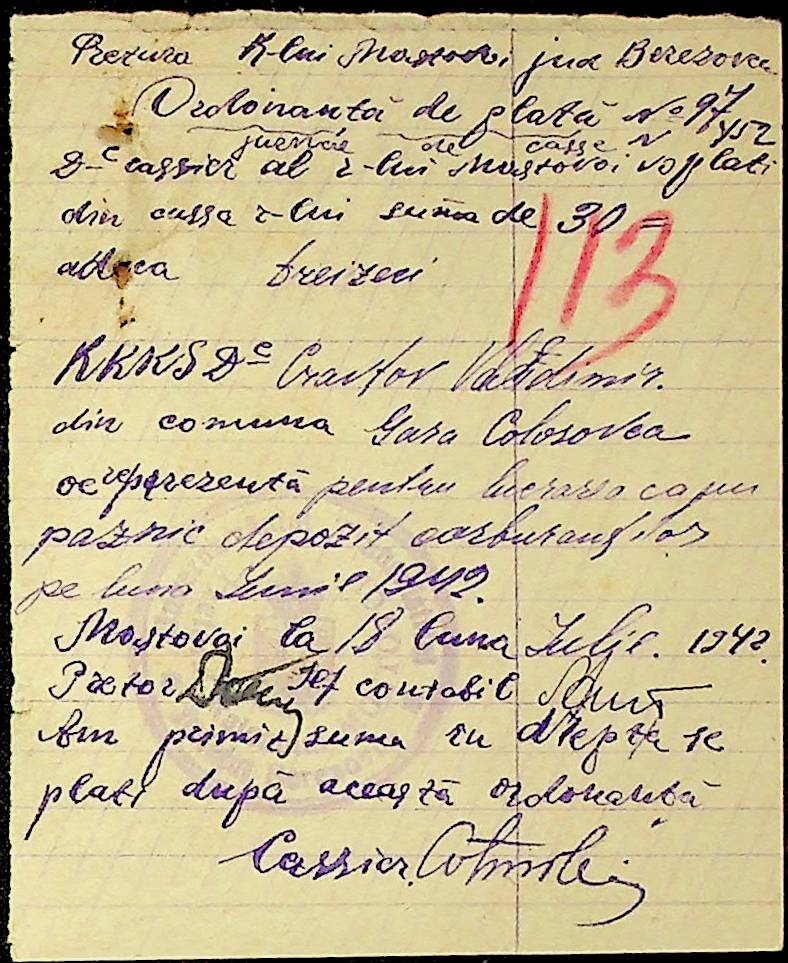 Pretura R-lui Mostovoi jud Berezovca
Ordonantă de plată No 97
jurnale de casse N 452
D-c cassier al r-lui Mostovoi v plati
din cassa r-lui suma de 30 =
adeca treizeci
113
RKKS D-c Vladimir.
din comuna Gara Colosovca
ce reprezentă pentru lucrarea ca un
paznic depozit carburanților
pe luna Iunie 1942.
Mostovoi la 18 luna Iulie. 1942.
Pretor Șef contabil
Am primit suma cu drepta se
plati după această ordonantă
Cassier.